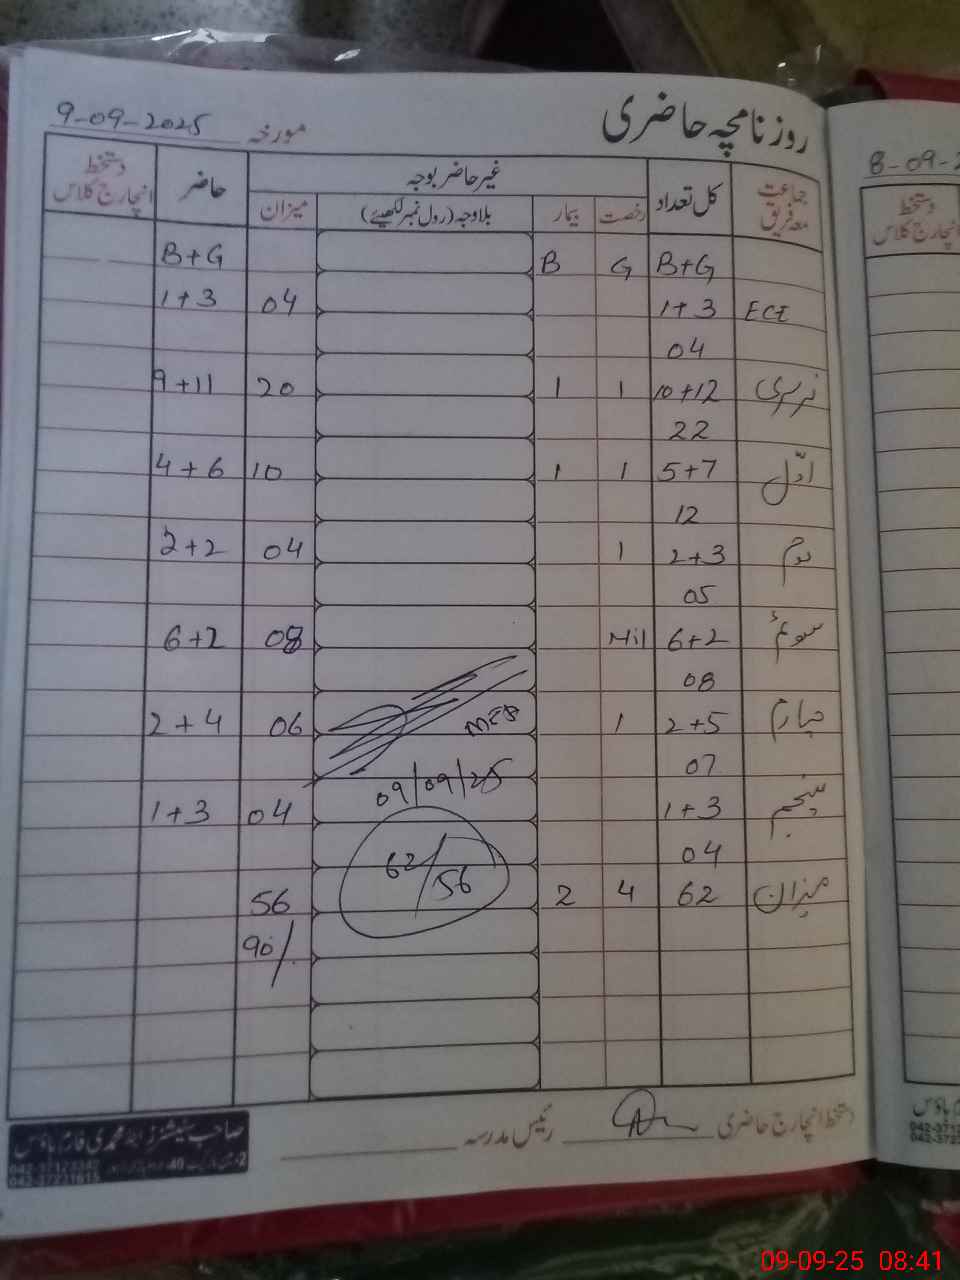 روزنامچہ حاضری
مورخہ 9-09-2025
جماعت معہ فریق کل تعداد غیر حاضر بوجہ حاضر دستخط انچارج کلاس
رخصت بیمار بلاوجہ (رول نمبر لکھیئے) میزان
B+G G B B+G
ECE 1+3 04 1+3
04
نرسری 10+12 1 1 20 9+11
22
اوّل 5+7 1 1 10 4+6
12
دوم 2+3 1 04 2+2
05
سوئم 6+2 Nil 08 6+2
08
چہارم 2+5 1 06 2+4
07
MEB
09/09/25
پنجم 1+3 04 1+3
04
62/56
میزان 62 4 2 56
90/.
دستخط انچارج حاضری رئیس مدرسہ
042-37123340
042-37231615
8-09-2
دستخط
انچارج کلاس
042-3712
042-3723
09-09-25 08:41